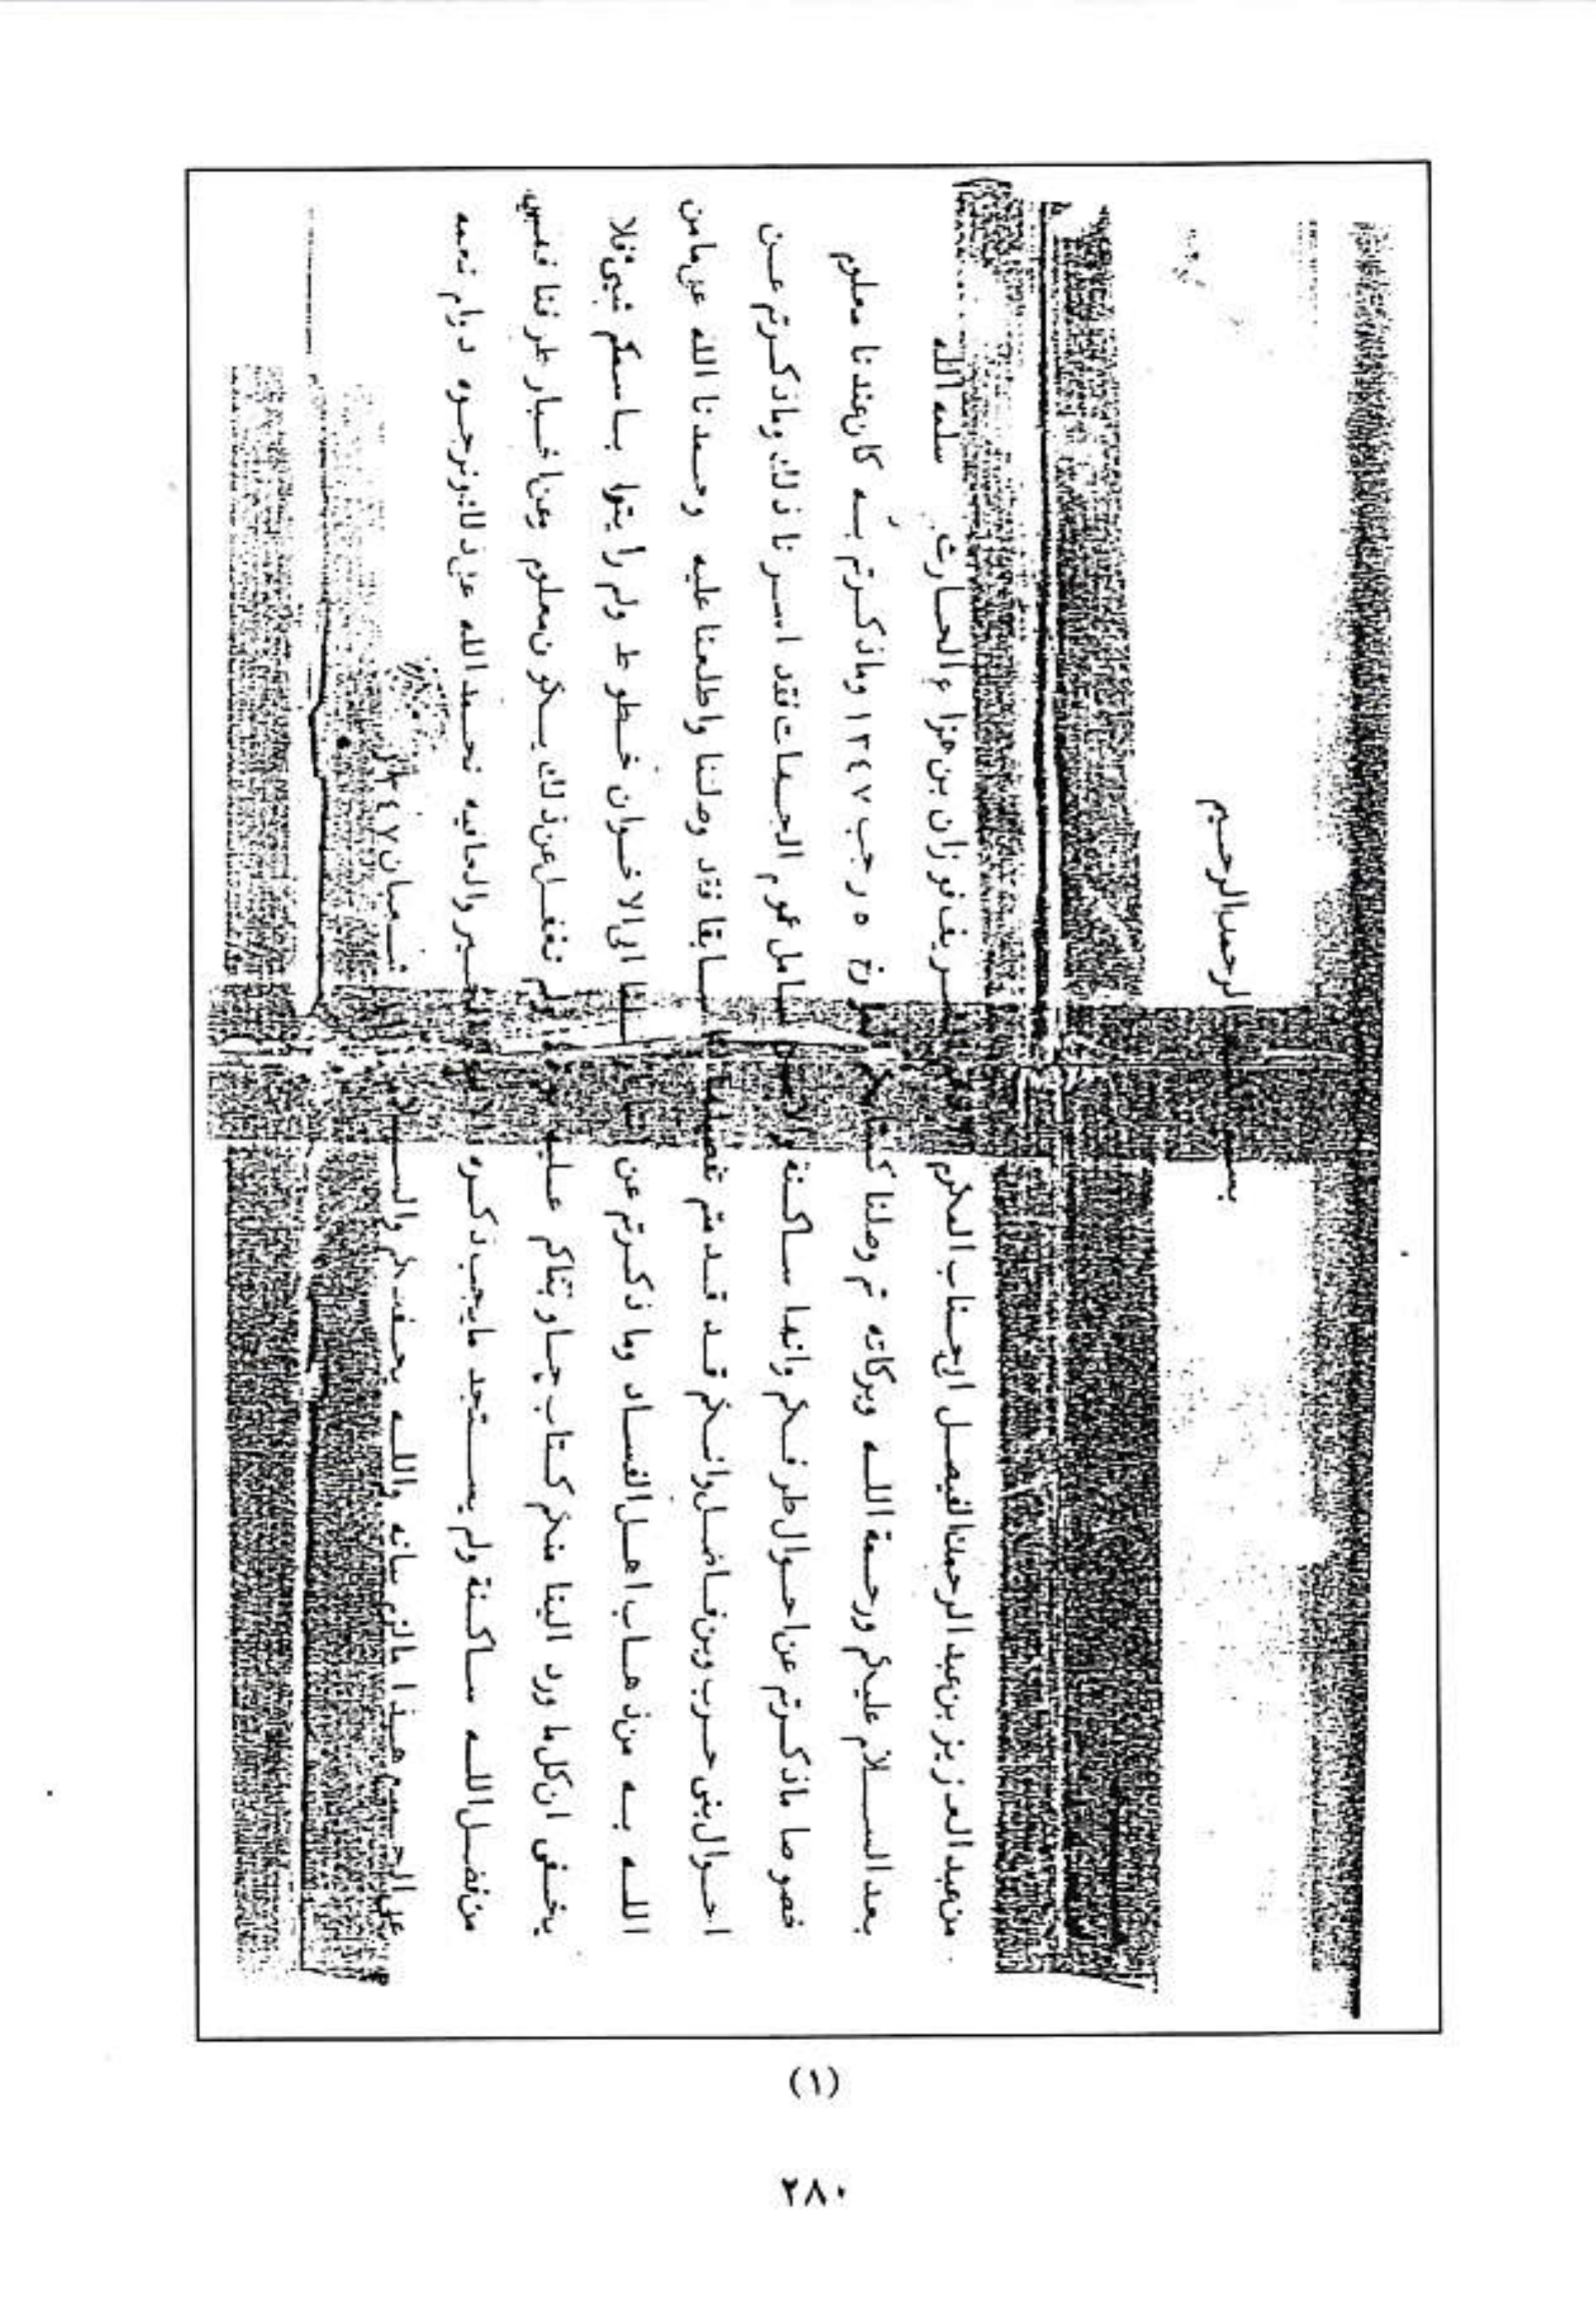 بسم الله الرحمن الرحيم
من عبد العزيز بن عبد الرحمن الفيصل الى جناب المكرم الشريف فوزان بن هزاع الحارث سلمه الله
بعد السلام عليكم ورحمة الله وبركاته ثم وصلنا كتابكم المؤرخ ٥ رجب ١٣٤٧ وماذكرتم به كان عندنا معلوم
خصوصا ماذكرتم عن احوال طرفكم وانها ساكنة والامن شامل عموم الجهات فقد اسرنا ذلك وماذكرتم عن
احوال بنى حرب وبن فاضل وانكم قد قدمتم تفصيلها سابقا فقد وصلنا واطلعنا عليه وحمدنا الله على مامن
الله به من ذهاب اهل الفساد وما ذكرتم عن الى الاخوان خطوط ولم رايتوا باسمكم شيى فلا
يخفى ان كل ما ورد الينا منكم كتاب جاوبناكم عليه ولم نغفل عن ذلك يكون معلوم وعن اخبار طرفنا فهى
من فضل الله ساكنة ولم يستجد مايجب ذكره الخير والعافيه نحمد الله على ذلك ونرجوه دوام نعمه
على الجميع هذا مالزم بيانه والله يحفظكم والسلام شعبان ١٣٤٧
(١)
٢٨٠